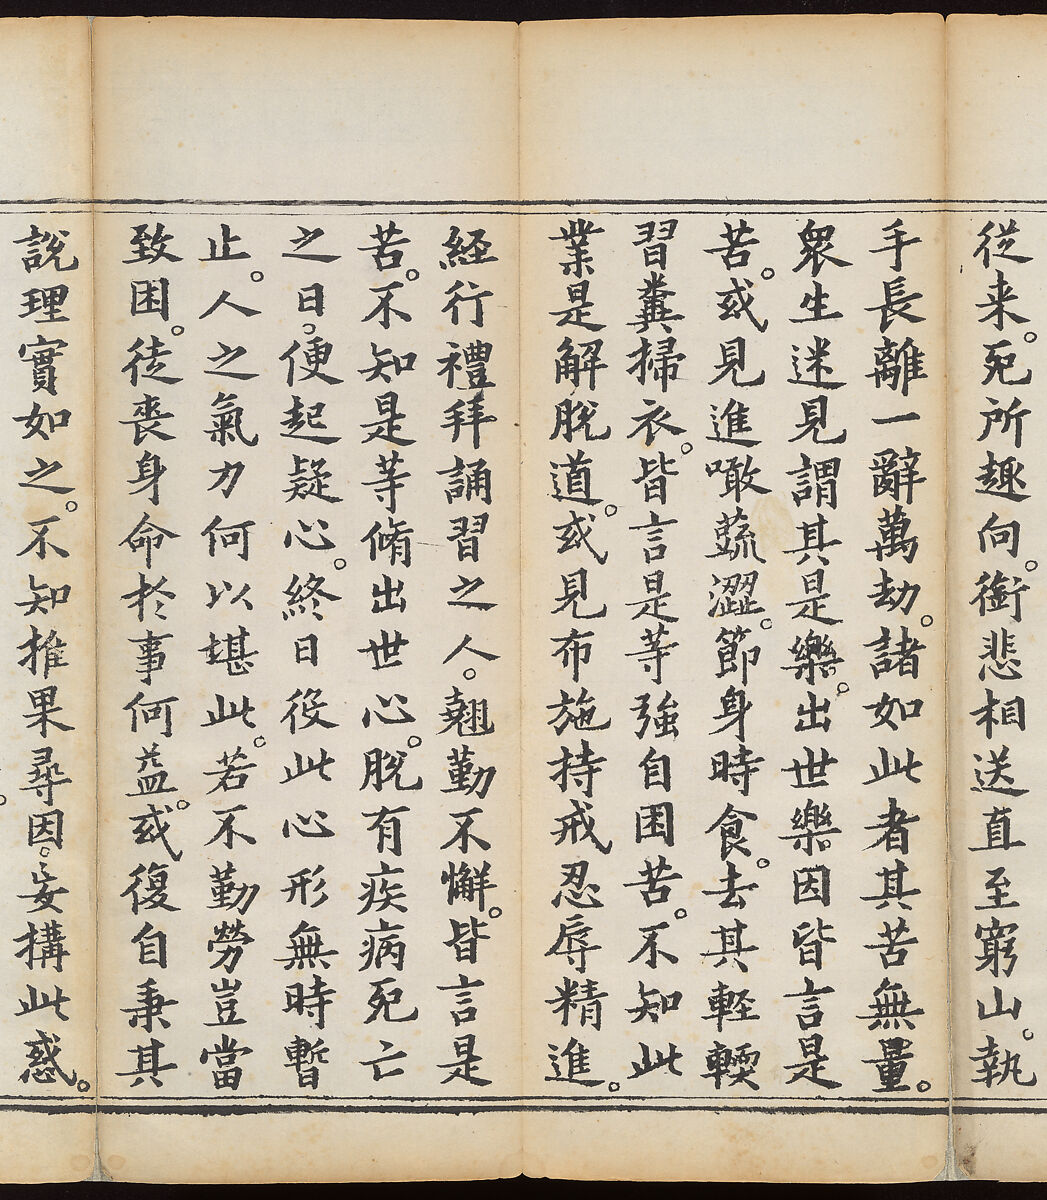 從来。死所趣向。銜悲相送直至窮山。執
手長離一辭萬劫。諸如此者其苦無量。
衆生迷見謂其是樂。出世樂因皆言是
苦。或見進噉蔬澀。節身時食。去其輕輭
習糞掃衣。皆言是等強自困苦。不知此
業是解脫道。或見布施持戒忍辱精進。
経行禮拜誦習之人。翹勤不懈。皆言是
苦。不知是等脩出世心。脫有疾病死亡
之日。便起疑心。終日役此心形無時暫
止。人之氣力何以堪此。若不勤勞豈當
致困。徒喪身命於事何益。或復自秉其
說理實如之。不知推果尋因。妄搆此惑。